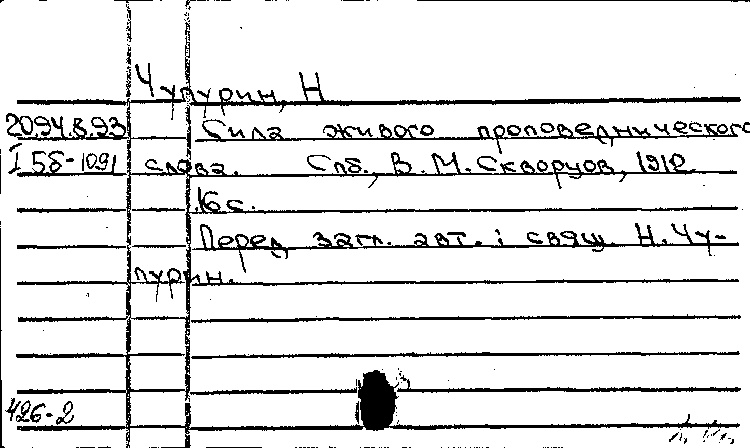 Чупурин, Н
20.94.8.93 Сила живого проповеднического
I 5б-1091 слова. Спб., В. М. Скворцов, 1912
16 с.
Перед загл. авт.: свящ. Н. Чу-
пурин.
426-2